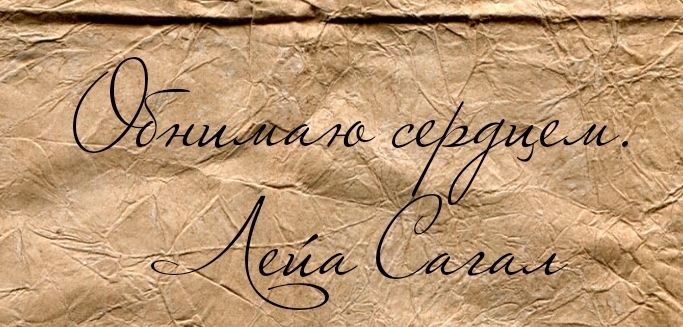 Обнимаю сердцем.
Лейа Сагал